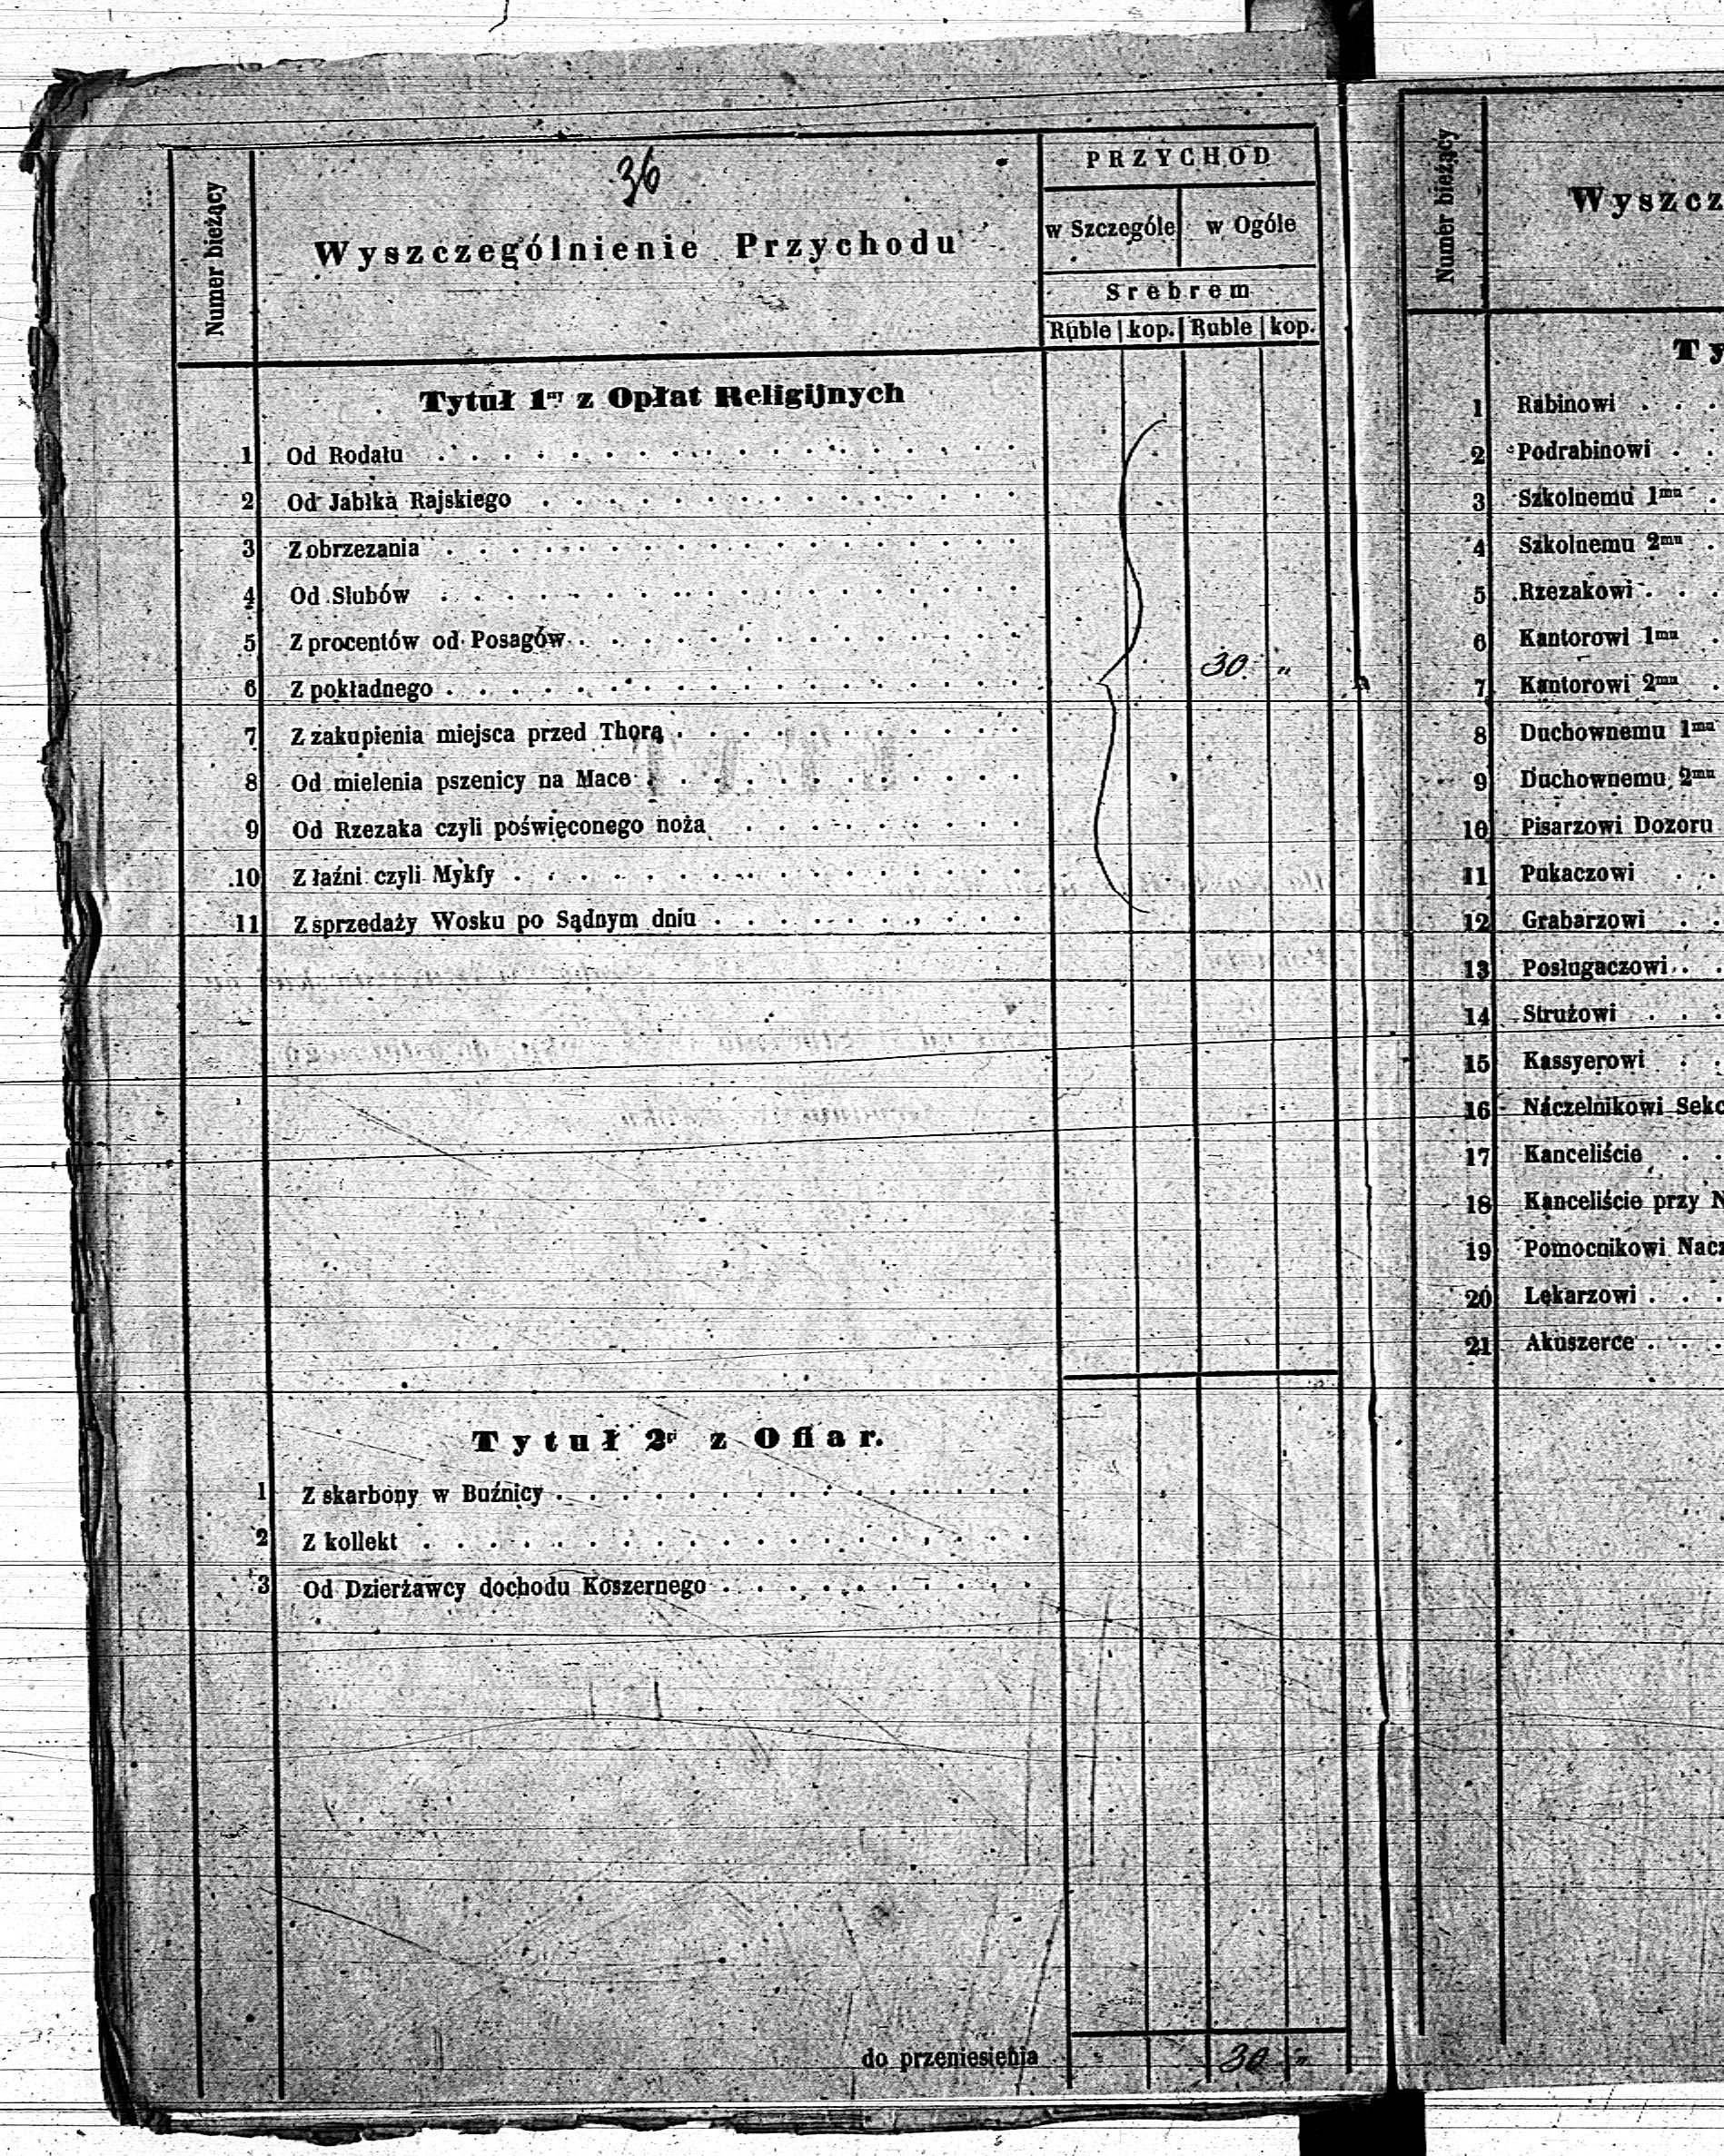 36
Numer bieżący
Wyszczególnienie Przychodu
PRZYCHOD
w Szczególe w Ogóle
Srebrem
Ruble kop. Ruble kop.
Tytuł 1ny z Opłat Religijnych
1 Od Rodału
2 Od Jabłka Rajskiego
3 Z obrzezania
4 Od Slubów
5 Z procentów od Posagów
30 "
6 Z pokładnego
7 Z zakupienia miejsca przed Thorą
8 Od mielenia pszenicy na Mace
9 Od Rzezaka czyli poświęconego noża
10 Z łaźni czyli Mykfy
11 Z sprzedaży Wosku po Sądnym dniu
Tytuł 2gi z Ofiar.
1 Z skarbony w Buźnicy
2 Z kollekt
3 Od Dzierżawcy dochodu Koszernego
do przeniesienia 30 "
Numer bieżący
Wyszcz
Ty
1 Rabinowi
2 Podrabinowi
3 Szkolnemu 1mu
4 Szkolnemu 2mu
5 Rzezakowi
6 Kantorowi 1mu
7 Kantorowi 2mu
8 Duchownemu 1mu
9 Duchownemu 2mu
10 Pisarzowi Dozoru
11 Pukaczowi
12 Grabarzowi
13 Posługaczowi
14 Strużowi
15 Kassyerowi
16 Naczelnikowi Sekc
17 Kanceliście
18 Kanceliście przy N
19 Pomocnikowi Nacz
20 Lekarzowi
21 Akuszerce